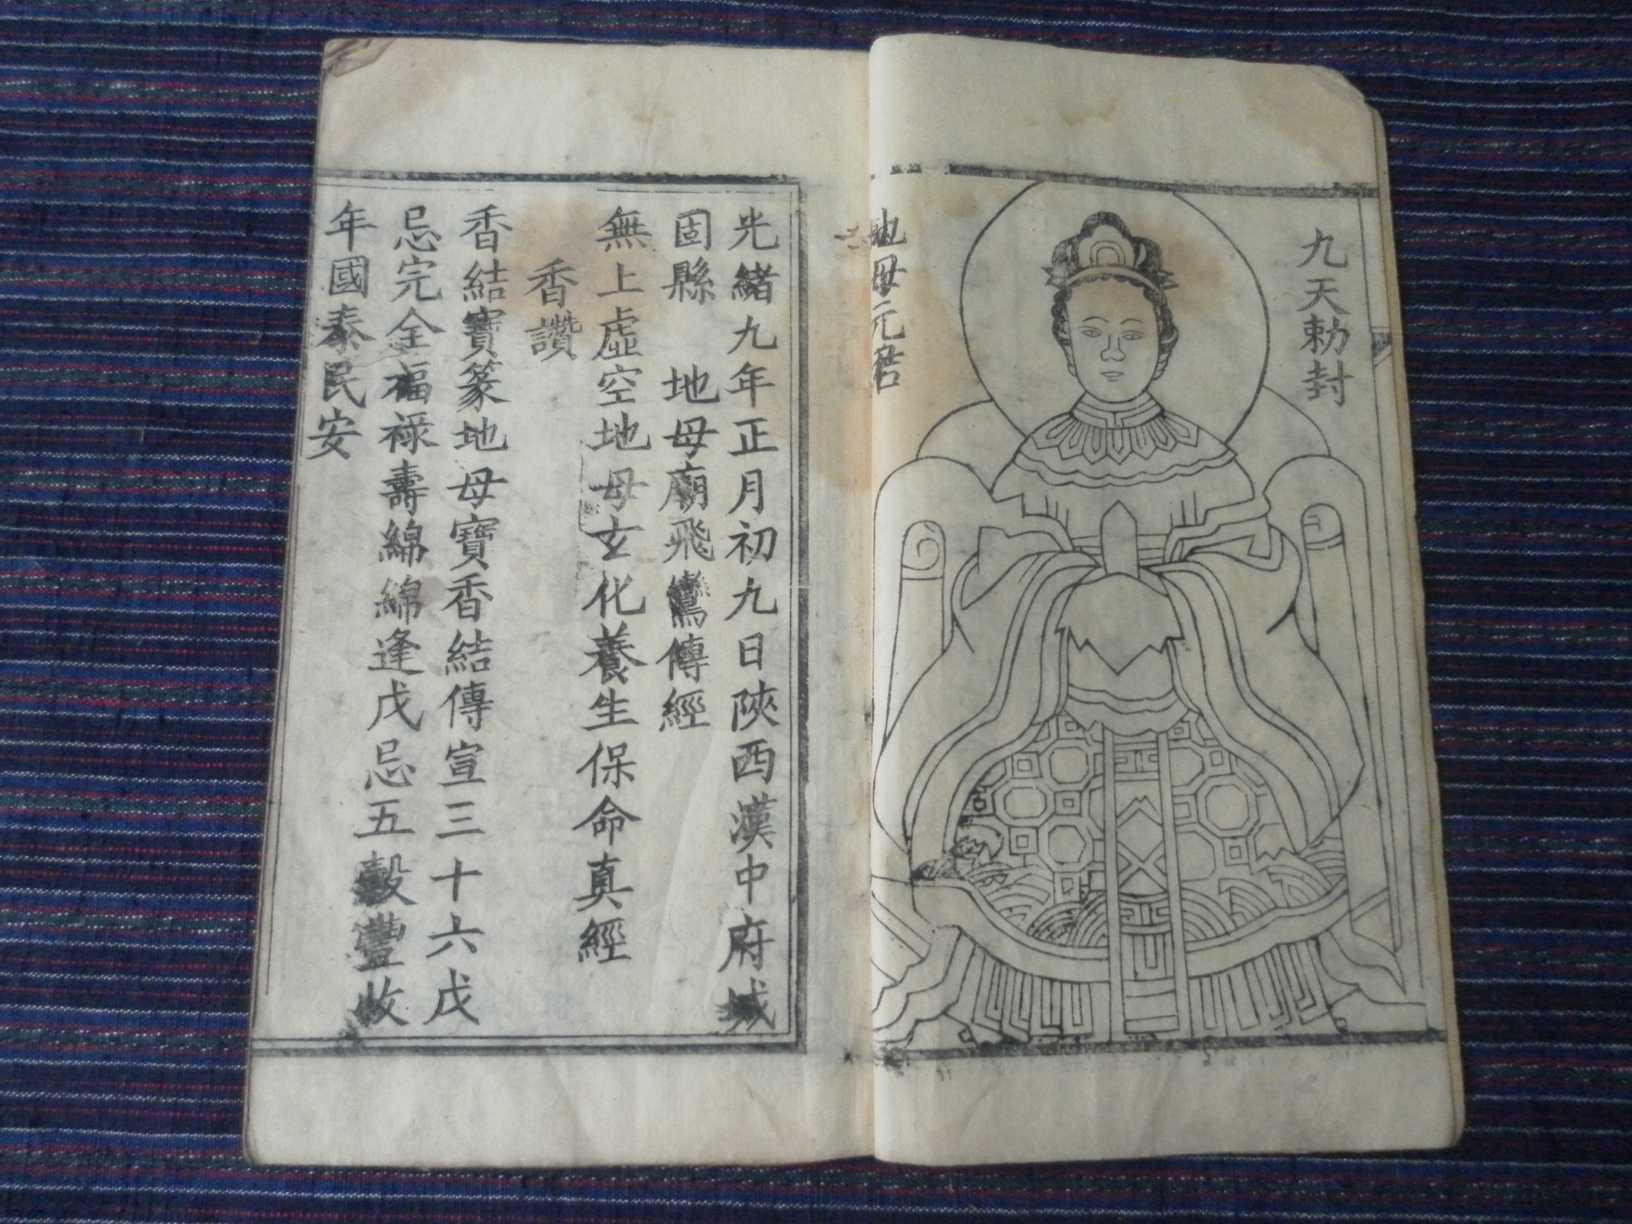 九天勅封
地母元君
光緒九年正月初九日陝西漢中府城
固縣 地母廟飛鸞傳經
無上虛空地母玄化養生保命真經
香讚
香結寶篆地母寶香結傳宣三十六戊
忌完全福祿壽綿綿逢戊忌五穀豐收
年國泰民安